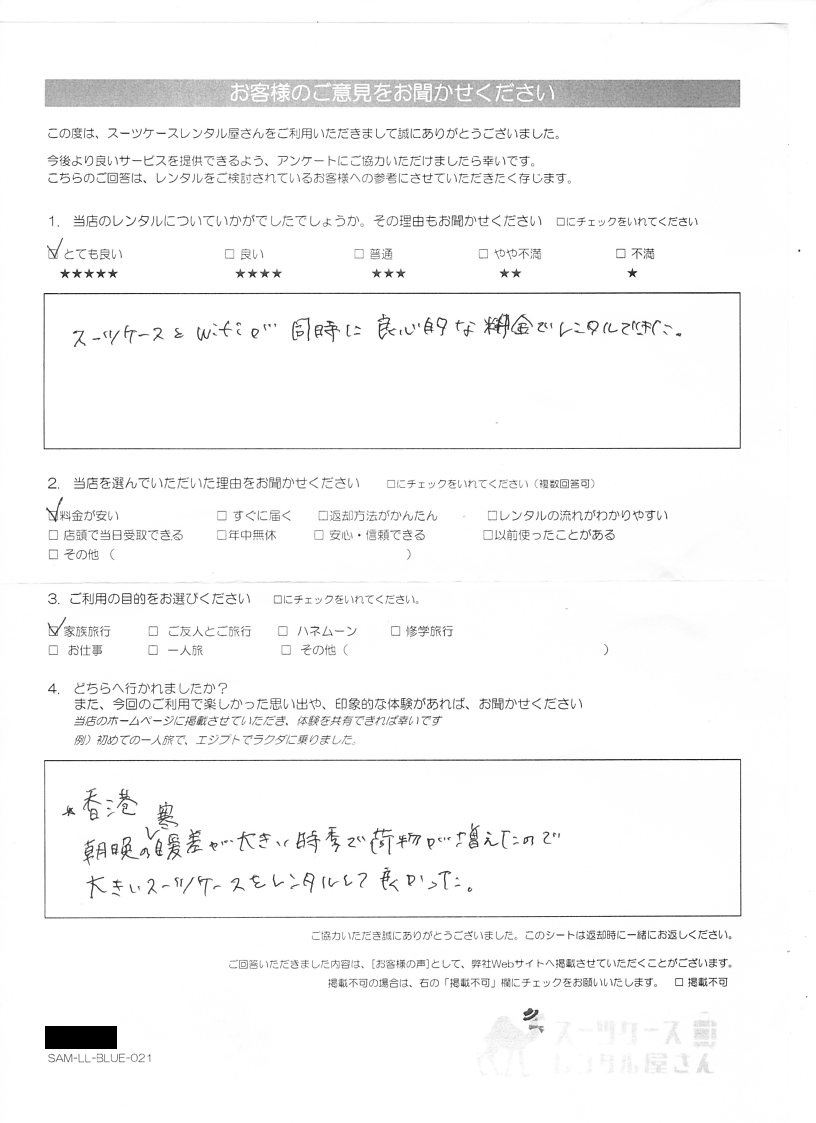 お客様のご意見をお聞かせください
この度は、スーツケースレンタル屋さんをご利用いただきまして誠にありがとうございました。
今後より良いサービスを提供できるよう、アンケートにご協力いただけましたら幸いです。
こちらのご回答は、レンタルをご検討されているお客様への参考にさせていただきたく存じます。
1. 当店のレンタルについていかがでしたでしょうか。その理由もお聞かせください □にチェックをいれてください
☑とても良い □ 良い □ 普通 □ やや不満 □ 不満
★★★★★ ★★★★ ★★★ ★★ ★
スーツケースとwifiが同時に良心的な料金でレンタルできた。
2. 当店を選んでいただいた理由をお聞かせください □にチェックをいれてください（複数回答可）
☑料金が安い □ すぐに届く □返却方法がかんたん □レンタルの流れがわかりやすい
□ 店頭で当日受取できる □年中無休 □ 安心・信頼できる □以前使ったことがある
□ その他（ ）
3. ご利用の目的をお選びください □にチェックをいれてください。
☑家族旅行 □ ご友人とご旅行 □ ハネムーン □ 修学旅行
□ お仕事 □ 一人旅 □ その他（ ）
4. どちらへ行かれましたか？
また、今回のご利用で楽しかった思い出や、印象的な体験があれば、お聞かせください
当店のホームページに掲載させていただき、体験を共有できれば幸いです
例）初めての一人旅で、エジプトでラクダに乗りました。
香港
朝晩の寒暖差が大きい時季で荷物が増えたので
大きいスーツケースをレンタルして良かった。
ご協力いただき誠にありがとうございました。このシートは返却時に一緒にお返しください。
ご回答いただきました内容は、[お客様の声]として、弊社Webサイトへ掲載させていただくことがございます。
掲載不可の場合は、右の「掲載不可」欄にチェックをお願いいたします。 □ 掲載不可
SAM-LL-BLUE-021